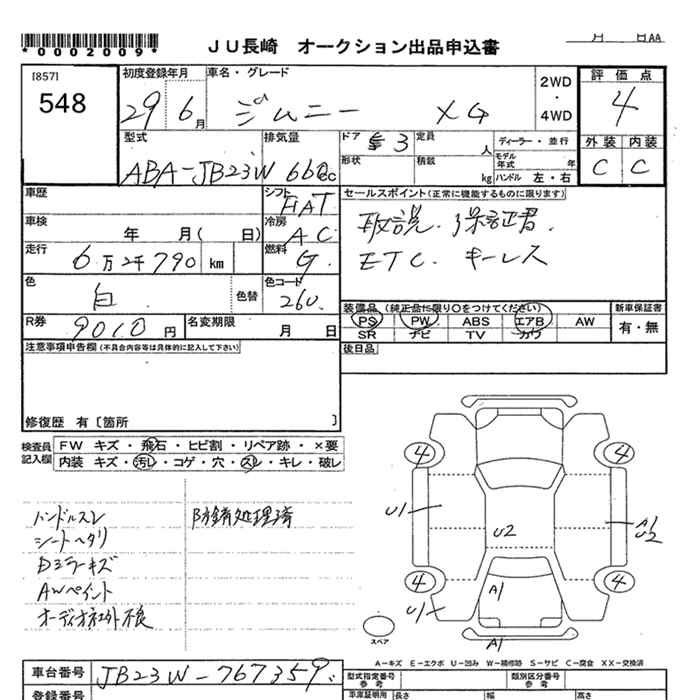 *0002009*
JU長崎 オークション出品申込書
月 日AA
[857]
548
初度登録年月
29 6月
車名・グレード
ジムニー XG
2WD
・
4WD
評価点
4
外装 内装
C C
型式
ABA-JB23W
排気量
660cc
ドア 3
形状
定員 人
積載 kg
ディーラー・並行
モデル年式 年
ハンドル 左・右
車歴
シフト
FAT
セールスポイント(正常に機能するものに限ります)
取説.保証書.
ETC. キーレス
車検 年 月( 日)
冷房
AC
走行 6万2千790km
燃料
G.
色 白
色替
色コード
26U
装備品(純正品に限り○をつけてください)
PS PW ABS エアB AW
SR ナビ TV カワ
新車保証書
有・無
R券 9010円
名変期限 月 日
後日品
注意事項申告欄(不具合内容等は具体的に記入して下さい)
修復歴 有〔箇所 〕
検査員記入欄
FW キズ・飛石・ヒビ割・リペア跡・×要
内装 キズ・汚レ・コゲ・穴・スレ・キレ・破レ
ハンドルスレ
シートヘタリ
Dミラーキズ
AWペイント
オーディオ社外不良
防錆処理済
4 4
U1
U2
A1
U2
4 4
U1
A1
A1
スペア
A-キズ E-エクボ U-凹み W-補修跡 S-サビ C-腐食 XX-交換済
車台番号 JB23W-767359
型式指定番号
参考
類別区分番号
参考
登録番号
車庫証明用
長さ
幅
高さ